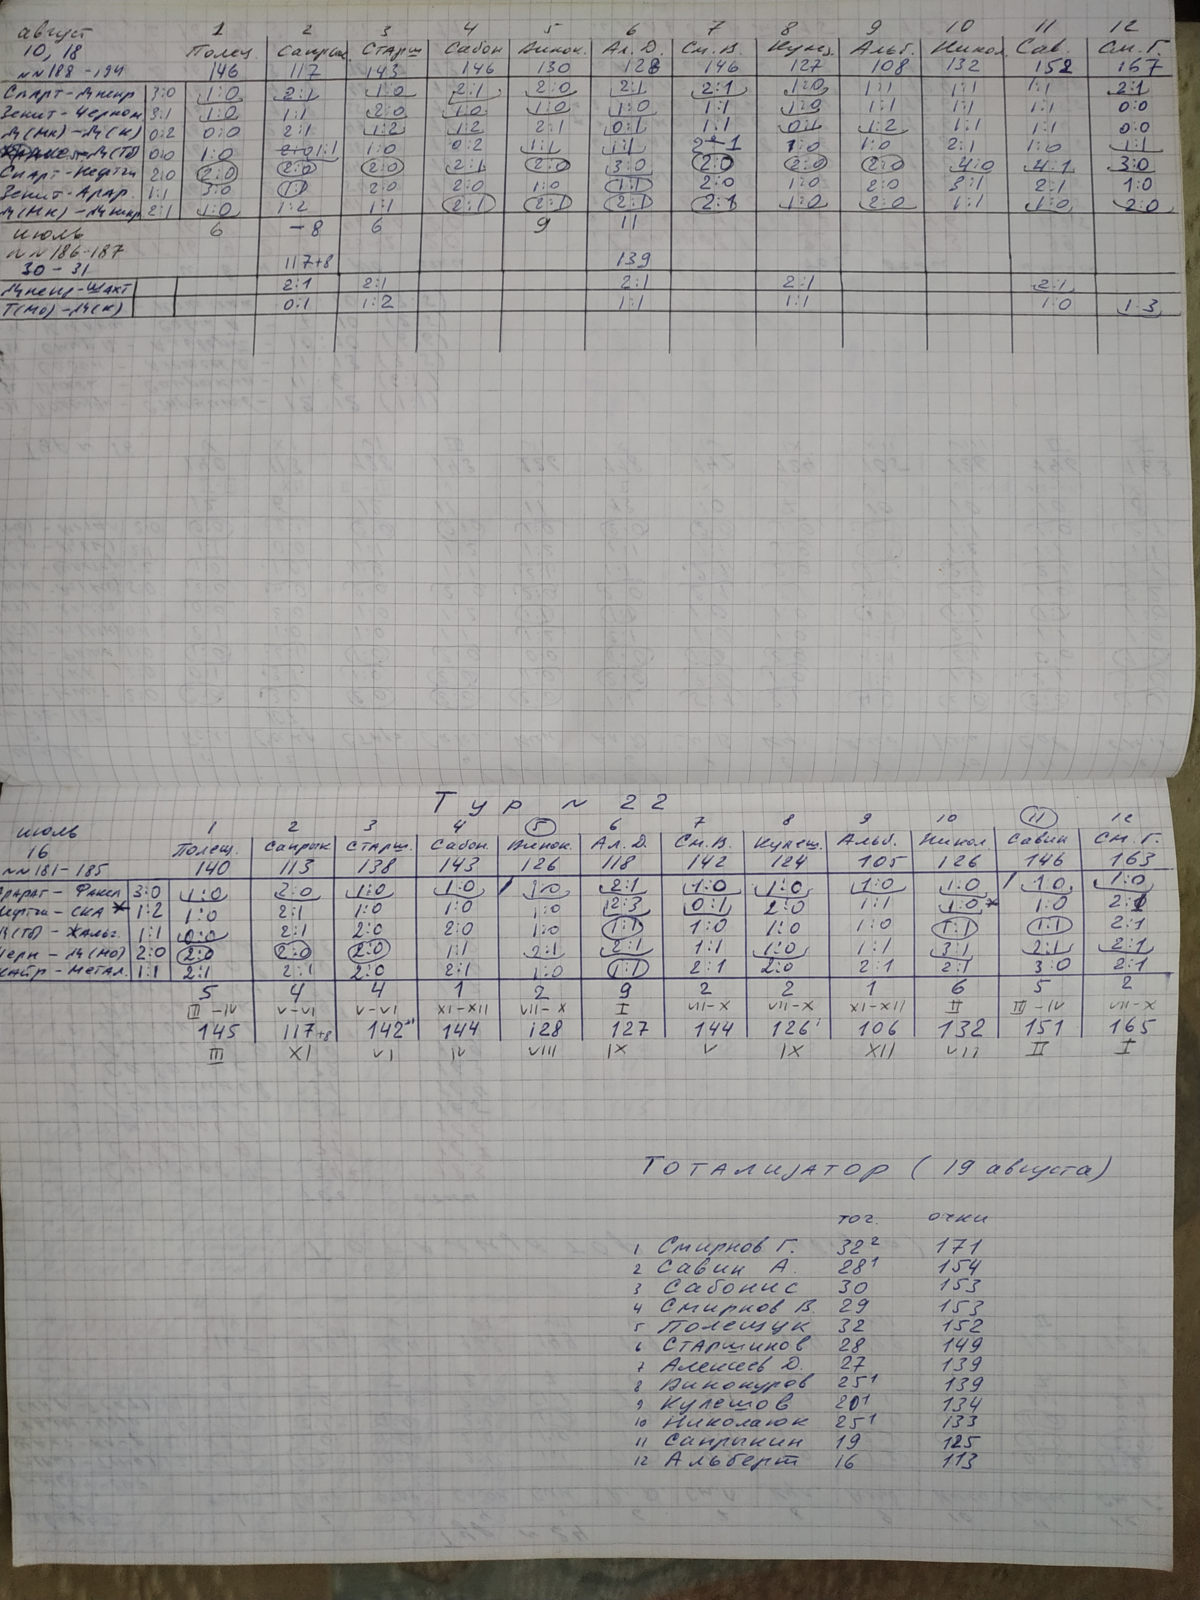 август 1 2 3 4 5 6 7 8 9 10 11 12
10, 18 Полещ. Сапрык. Старш Сабон Винок. Ал. Д. См. В. Кулещ. Альб. Никол Сав. См. Г.
NN 188-194 146 117 143 146 130 128 146 127 108 132 152 167
Спарт-Днепр 3:0 1:0 2:1 1:0 2:1 2:0 2:1 2:1 1:0 1:1 1:1 1:1 2:1
Зенит-Черном 3:1 1:0 1:1 2:0 1:0 1:0 1:0 1:1 1:0 1:1 1:1 1:1 0:0
Д(Мн)-Д(К) 0:2 0:0 2:1 1:2 1:2 2:1 0:1 1:1 0:1 1:2 1:1 1:1 0:0
Д(Тб) 0:0 1:0 1:1 1:0 0:2 1:1 1:1 2-1 1:0 1:0 2:1 1:0 1:1
Спарт-Нефтчи 2:0 2:0 2:0 2:0 2:1 2:0 3:0 2:0 2:0 2:0 4:0 4:1 3:0
Зенит-Арар 1:1 3:0 1:1 2:0 2:0 1:0 1:1 2:0 1:0 2:0 3:1 2:1 1:0
Д(Мн)-Днепр 2:1 1:0 1:2 1:1 2:1 2:1 2:1 2:1 1:0 2:0 1:1 1:0 2:0
июль 6 -8 6 9 11
NN 186-187
30-31 117+8 139
Днепр-Шахт 2:1 2:1 2:1 2:1 2:1
Т(Мо)-Д(К) 0:1 1:2 1:1 1:1 1:0 1:3
Тур N 22
июль 1 2 3 4 5 6 7 8 9 10 11 12
16 Полещ. Сапрык Старш. Сабон. Винок. Ал. Д. См. В. Кулещ. Альб. Никол Савин См. Г.
NN 181-185 140 113 138 143 126 118 142 124 105 126 146 163
Арарат-Факел 3:0 1:0 2:0 1:0 1:0 1:0 2:1 1:0 1:0 1:0 1:0 1:0 1:0
Нефтчи-СКА 1:2 1:0 2:1 1:0 1:0 1:0 2:3 0:1 2:0 1:1 1:0 1:0
Д(Тб)-Жальг. 1:1 0:0 2:1 2:0 2:0 1:0 1:1 1:0 1:0 1:0 1:1 1:1 2:1
Черн-Д(Мо) 2:0 2:0 2:0 2:0 1:1 2:1 2:1 1:1 1:0 1:1 3:1 2:1 2:1
Кайр-Метал. 1:1 2:1 2:1 2:0 2:1 1:0 1:1 2:1 2:0 2:1 2:1 3:0 2:1
5 4 4 1 2 9 2 2 1 6 5 2
III-IV V-VI V-VI XI-XII VII-X I VII-X VII-X XI-XII II III-IV VII-X
145 117+8 142 144 128 127 144 126 106 132 151 165
III XI VI IV VIII IX V IX XII VII II I
Тотализатор (19 августа)
тог. очки
1 Смирнов Г. 32² 171
2 Савин А. 28¹ 154
3 Сабонис 30 153
4 Смирнов В. 29 153
5 Полещук 32 152
6 Старшинов 28 149
7 Алексеев Д. 27 139
8 Винокуров 25¹ 139
9 Кулешов 20¹ 134
10 Николаюк 25¹ 133
11 Сапрыкин 19 125
12 Альберт 16 113